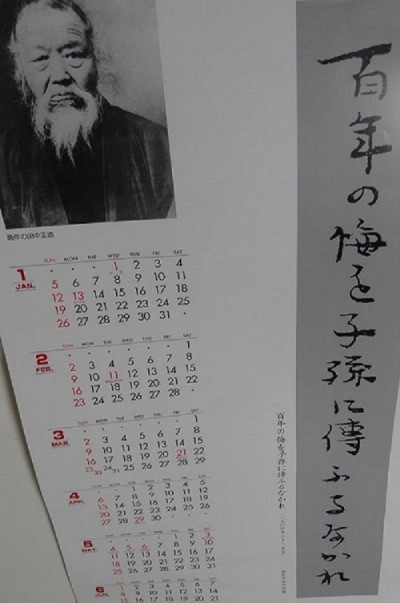 百年の悔を子孫に傳ふるなかれ
晩年の田中正造
1 JAN.
SUN MON TUE WED THU FRI SAT
・ ・ ・ 1 2 3 4
5 6 7 8 9 10 11
12 13 14 15 16 17 18
19 20 21 22 23 24 25
26 27 28 29 30 31 ・
2 FEB.
SUN MON TUE WED THU FRI SAT
・ ・ ・ ・ ・ ・ 1
2 3 4 5 6 7 8
9 10 11 12 13 14 15
16 17 18 19 20 21 22
23 24 25 26 27 28 ・
3 MAR.
SUN MON TUE WED THU FRI SAT
・ ・ ・ ・ ・ ・ 1
2 3 4 5 6 7 8
9 10 11 12 13 14 15
16 17 18 19 20 21 22
23/30 24/31 25 26 27 28 29
4 APR.
SUN MON TUE WED THU FRI SAT
・ ・ 1 2 3 4 5
6 7 8 9 10 11 12
13 14 15 16 17 18 19
20 21 22 23 24 25 26
27 28 29 30 ・ ・ ・
5 MAY.
SUN MON TUE WED THU FRI SAT
・ ・ ・ ・ 1 2 3
4 5 6 7 8 9 10
11 12 13 14 15 16 17
18 19 20 21 22 23 24
25 26 27 28 29 30 31
6 JUN.
SUN MON TUE WED THU FRI SAT
1 2 3 4 5 6 7
8 9 10 11 12 13 14
百年の悔を子孫に傳ふるなかれ